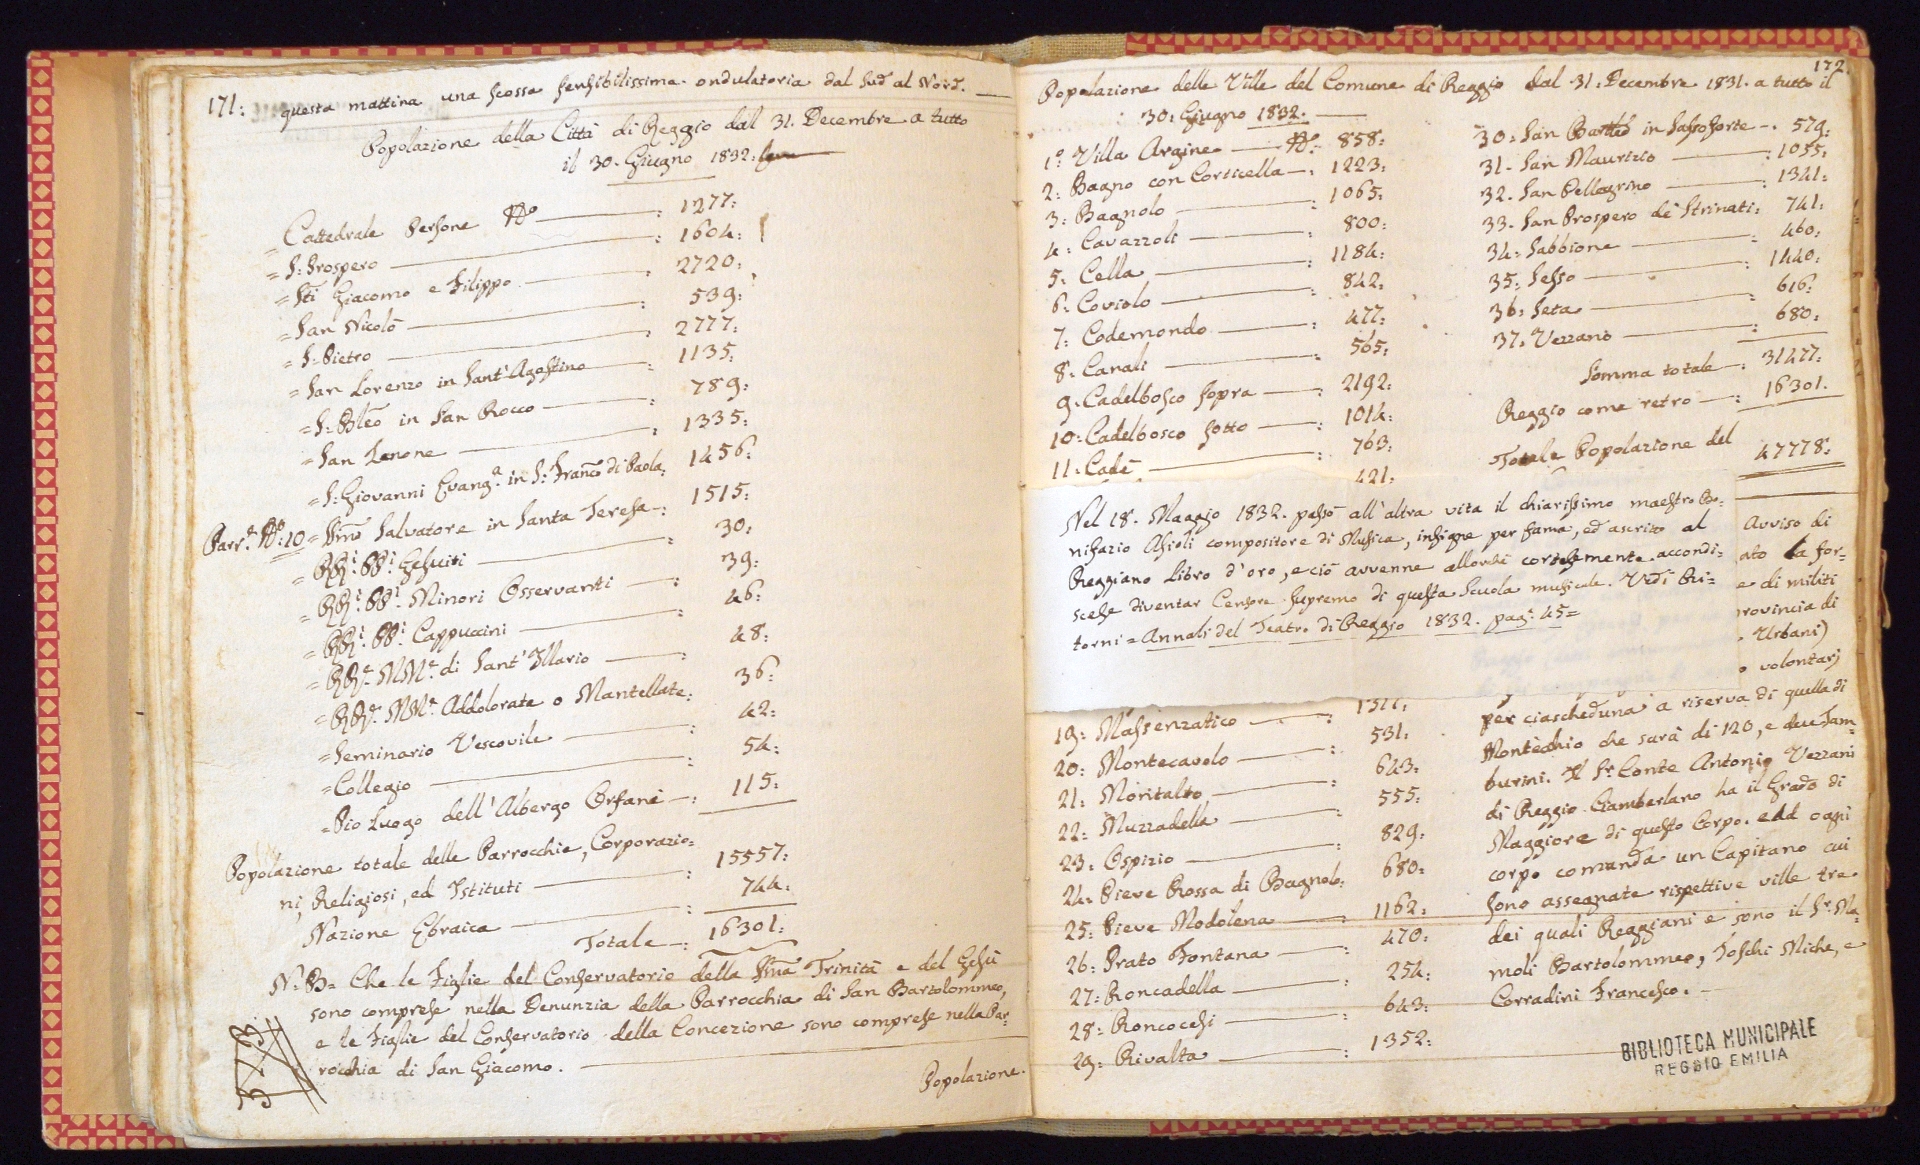 171: questa mattina una scossa sensibilissima ondulatoria dal Sud al Nord.
Popolazione della Città di Reggio dal 31. Decembre a tutto
il 30. Giugno 1832.
= Cattedrale Persone N.o : 1277:
= S: Prospero : 1604:
= Sti Giacomo e Filippo : 2720:
= San Nicolò : 539:
= S: Pietro : 2777:
= San Lorenzo in Sant'Agostino : 1135:
= S: Bleo in San Rocco : 789:
= San Zenone : 1335:
= S: Giovanni Evang.a in S: Franco di Paola : 1456:
Parr.e N.o: 10 = Ssmo Salvatore in Santa Teresa : 1515:
= RR.i PP.i Gesuiti : 30:
= RR.i PP.i Minori Osservanti : 39:
= RR.i PP.i Cappuccini : 46:
= RR.e MM.e di Sant'Illario : 48:
= RR.e MM.e Addolorate o Mantellate : 36:
= Seminario Vescovile : 42:
= Collegio : 54:
= Pio Luogo dell'Albergo Orfani : 115:
Popolazione totale delle Parrocchie, Corporazio=
ni, Religiosi, ed Istituti : 15557:
Nazione Ebraica : 744:
Totale : 16301:
N: B= Che le Figlie del Conservatorio della Ssma Trinità e del Gesù
sono comprese nella Denunzia della Parrocchia di San Bartolommeo,
e le Figlie del Conservatorio della Concezione sono comprese nella Par=
rocchia di San Giacomo.
Popolazione.
172.
Popolazione delle Ville del Comune di Reggio dal 31. Decembre 1831. a tutto il
30: Giugno 1832.
1.o Villa Argine N.o 858:
2: Bagno con Corticella : 1223:
3: Bagnolo : 1065:
4: Cavazzoli : 800:
5: Cella : 1184:
6: Coviolo : 842:
7: Codemondo : 477:
8: Canali : 565:
9: Cadelbosco sopra : 2192:
10: Cadelbosco sotto : 1014:
11: Cadè : 763:
421:
Nel 18. Maggio 1832. passò all'altra vita il chiarissimo maestro Bo=
nifazio Asioli compositore di Musica, insigne per fama, ed ascritto al
Reggiano Libro d'oro, e ciò avvenne allorchè cortesemente accondi=
scese diventar Censore supremo di questa Scuola musicale. Vedi Ri=
torni = Annali del Teatro di Reggio 1832. pag: 45=
19: Massenzatico
20: Montecavolo : 531:
21: Moritalto : 643:
22: Muzzadella : 555:
23: Ospizio : 829:
24: Pieve Rossa di Bagnolo: 680:
25: Pieve Modolena : 1162:
26: Prato Fontana : 470:
27: Roncadella : 254:
28: Roncocesi : 643:
29: Rivalta : 1352:
30: San Barteo in Sassoforte 579:
31. San Maurizio : 1055:
32. San Pellegrino : 1341:
33. San Prospero de' Strinati: 741:
34: Sabbione : 460:
35: Sesso : 1440:
36: Seta : 616:
37: Vezzano : 680:
Somma totale : 31477:
Reggio come retro : 16301.
Totale Popolazione del 47778:
Avviso di
ato la for=
e di militi
rovincia di
Urbani)
o volontarj
per ciascheduna a riserva di quella di
Montecchio che sarà di 120, e due Tam=
burini. Il Sr. Conte Antonio Vezzani
di Reggio Ciamberlano ha il Grado di
Maggiore di questo Corpo. ed ad ogni
corpo comanda un Capitano cui
sono assegnate rispettive ville tre
dei quali Reggiani e sono il Sr. Ma=
moli Bartolommeo, Toschi Miche, e
Corradini Francesco.
BIBLIOTECA MUNICIPALE
REGGIO EMILIA